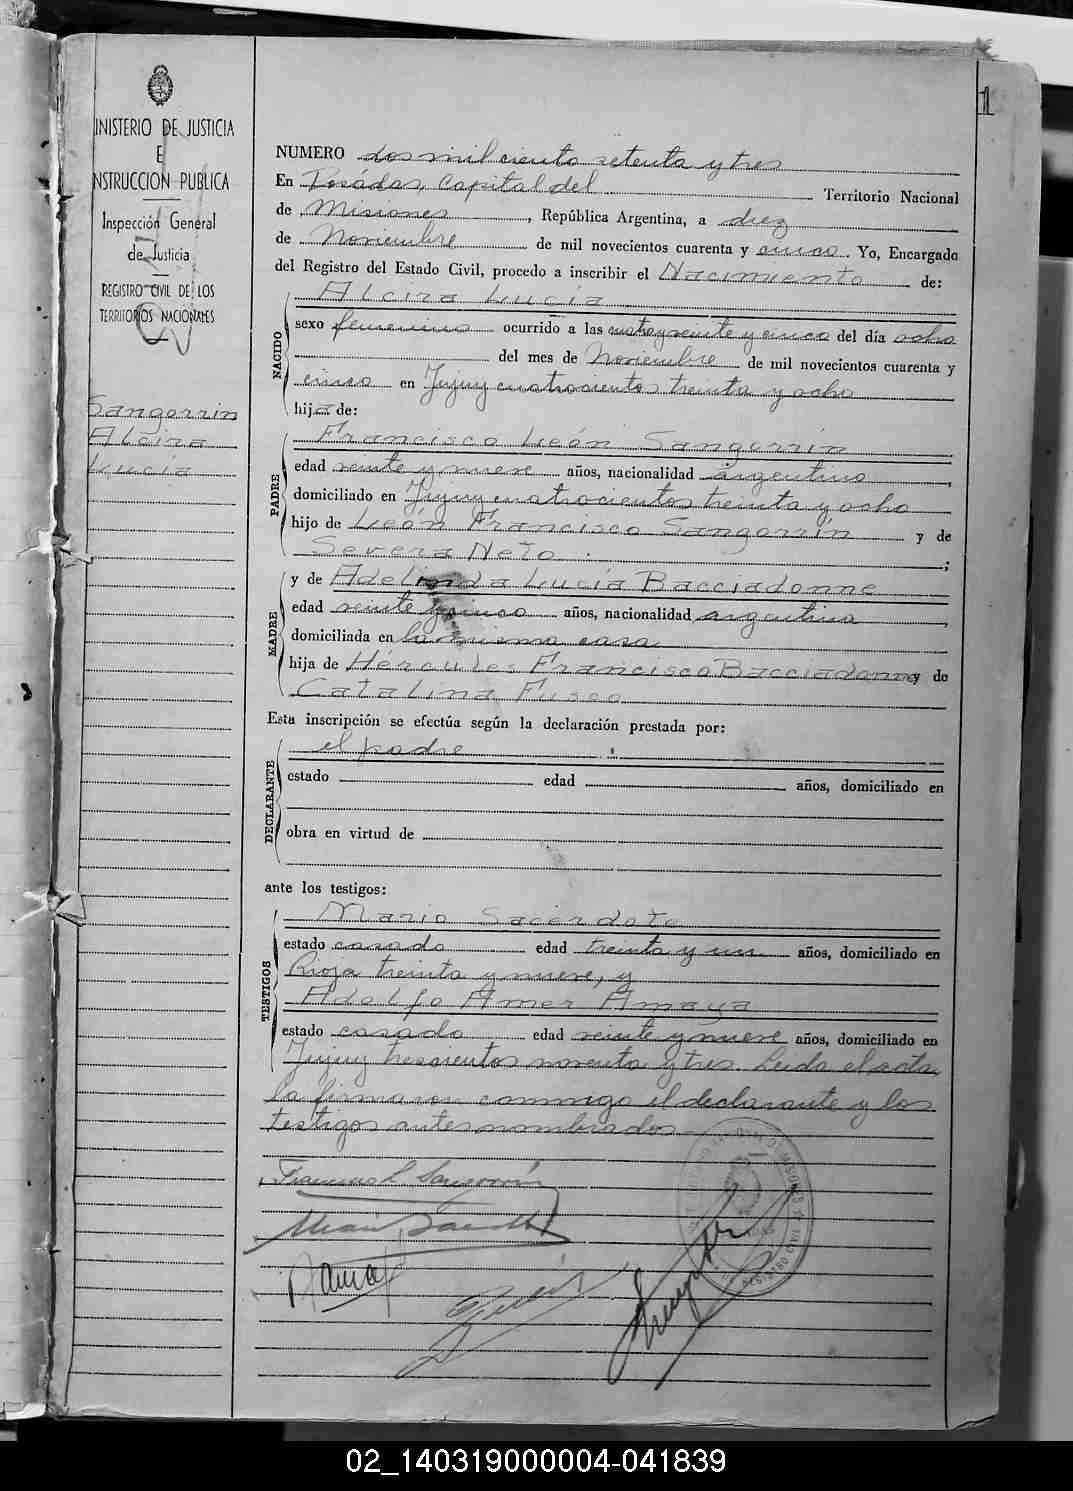 1
MINISTERIO DE JUSTICIA
E
INSTRUCCION PUBLICA
Inspección General
de Justicia
REGISTRO CIVIL DE LOS
TERRITORIOS NACIONALES
Sangorrin
Alcira
Lucía
NUMERO dos mil ciento setenta y tres
En Posadas, Capital del Territorio Nacional
de Misiones, República Argentina, a diez
de Noviembre de mil novecientos cuarenta y cinco. Yo, Encargado
del Registro del Estado Civil, procedo a inscribir el Nacimiento de:
NACIDO
Alcira Lucía
sexo femenino ocurrido a las cuatro y veinte y cinco del día ocho
del mes de Noviembre de mil novecientos cuarenta y
cinco en Jujuy cuatrocientos treinta y ocho
hija de:
PADRE
Francisco León Sangorrin
edad veinte y nueve años, nacionalidad argentino,
domiciliado en Jujuy cuatrocientos treinta y ocho
hijo de León Francisco Sangorrín y de
Severa Neto ;
MADRE
y de Adelinda Lucía Bacciadonne
edad veinte y cinco años, nacionalidad argentina,
domiciliada en la misma casa
hija de Hércules Francisco Bacciadonne y de
Catalina Fusco
Esta inscripción se efectúa según la declaración prestada por:
DECLARANTE
el padre
estado edad años, domiciliado en
obra en virtud de
ante los testigos:
TESTIGOS
Mario Sacerdote
estado casado edad treinta y un años, domiciliado en
Rioja treinta y nueve, y
Adolfo Amer Amaya
estado casado edad veinte y nueve años, domiciliado en
Jujuy trescientos noventa y tres. Leida el acta
la firmaron conmigo el declarante y los
testigos antes nombrados
Francisco L Sangorrín
02_140319000004-041839